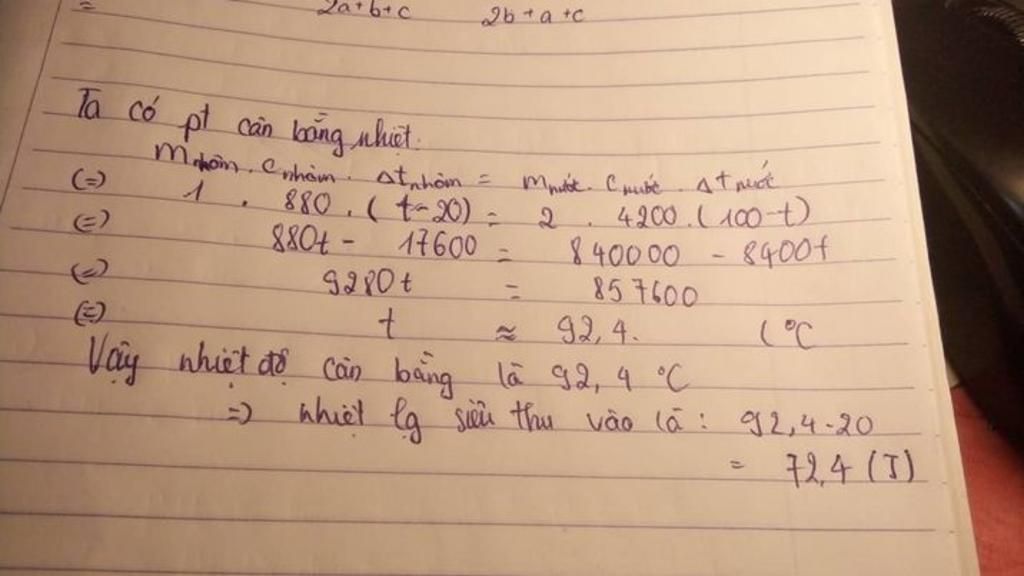 = 2a+b+c 2b+a+c
Ta có pt cân bằng nhiệt.
mnhôm. cnhôm. Δtnhôm = mnước. cnước. Δtnước
(=) 1 . 880 . (t-20) = 2 . 4200. (100-t)
(=) 880t - 17600 = 840000 - 8400t
(=) 9280t = 857600
(=) t ≈ 92,4. (°C
Vậy nhiệt độ cân bằng là 92,4 °C
=) nhiệt lg siêu thu vào là: 92,4-20
= 72,4 (J)